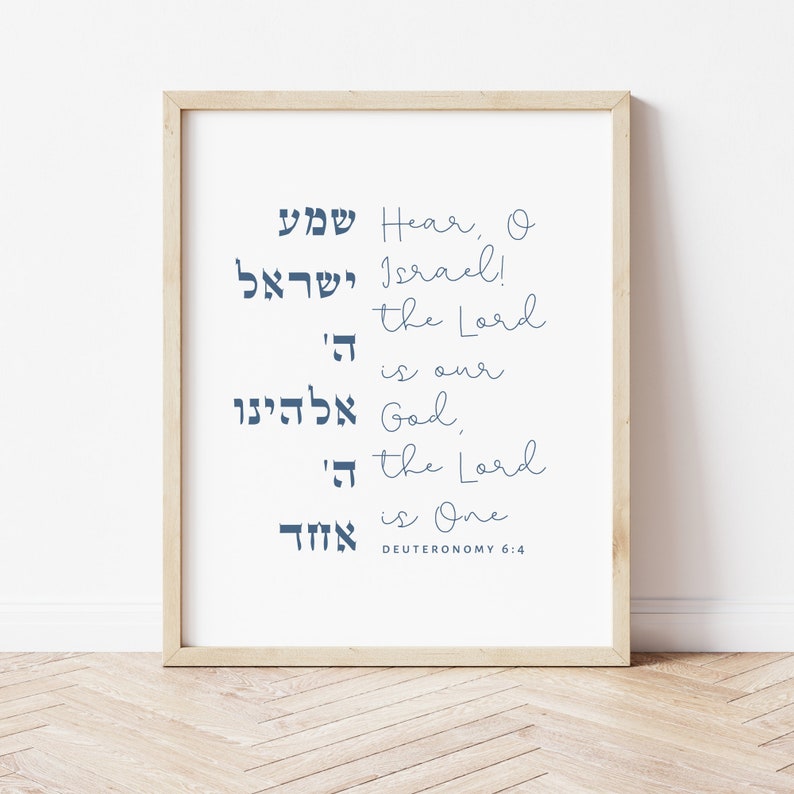 שמע
ישראל
ה'
אלהינו
ה'
אחד
Hear, O
Israel!
the Lord
is our
God,
the Lord
is One
DEUTERONOMY 6:4